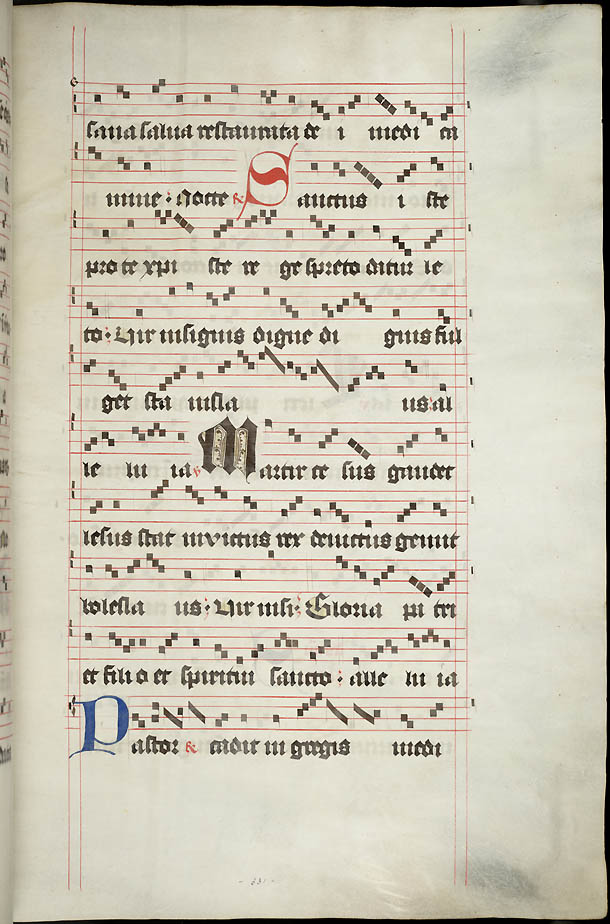 sana salua restaurata de i medi ca
mine : Nocte Sanctus i ste
pro te xpi ste re ge spreto datur le
to · Uir insignis digne di gnis ful
get sta nisla us · al
le lu ia Martir ce sus gaudet
lesus stat inuictus rex deuictus gemit
bolesla us · Uir insi · Gloria pa tri
et fili o et spiritui sancto · alle lu ia
Pastor cadit in gregis medi
331